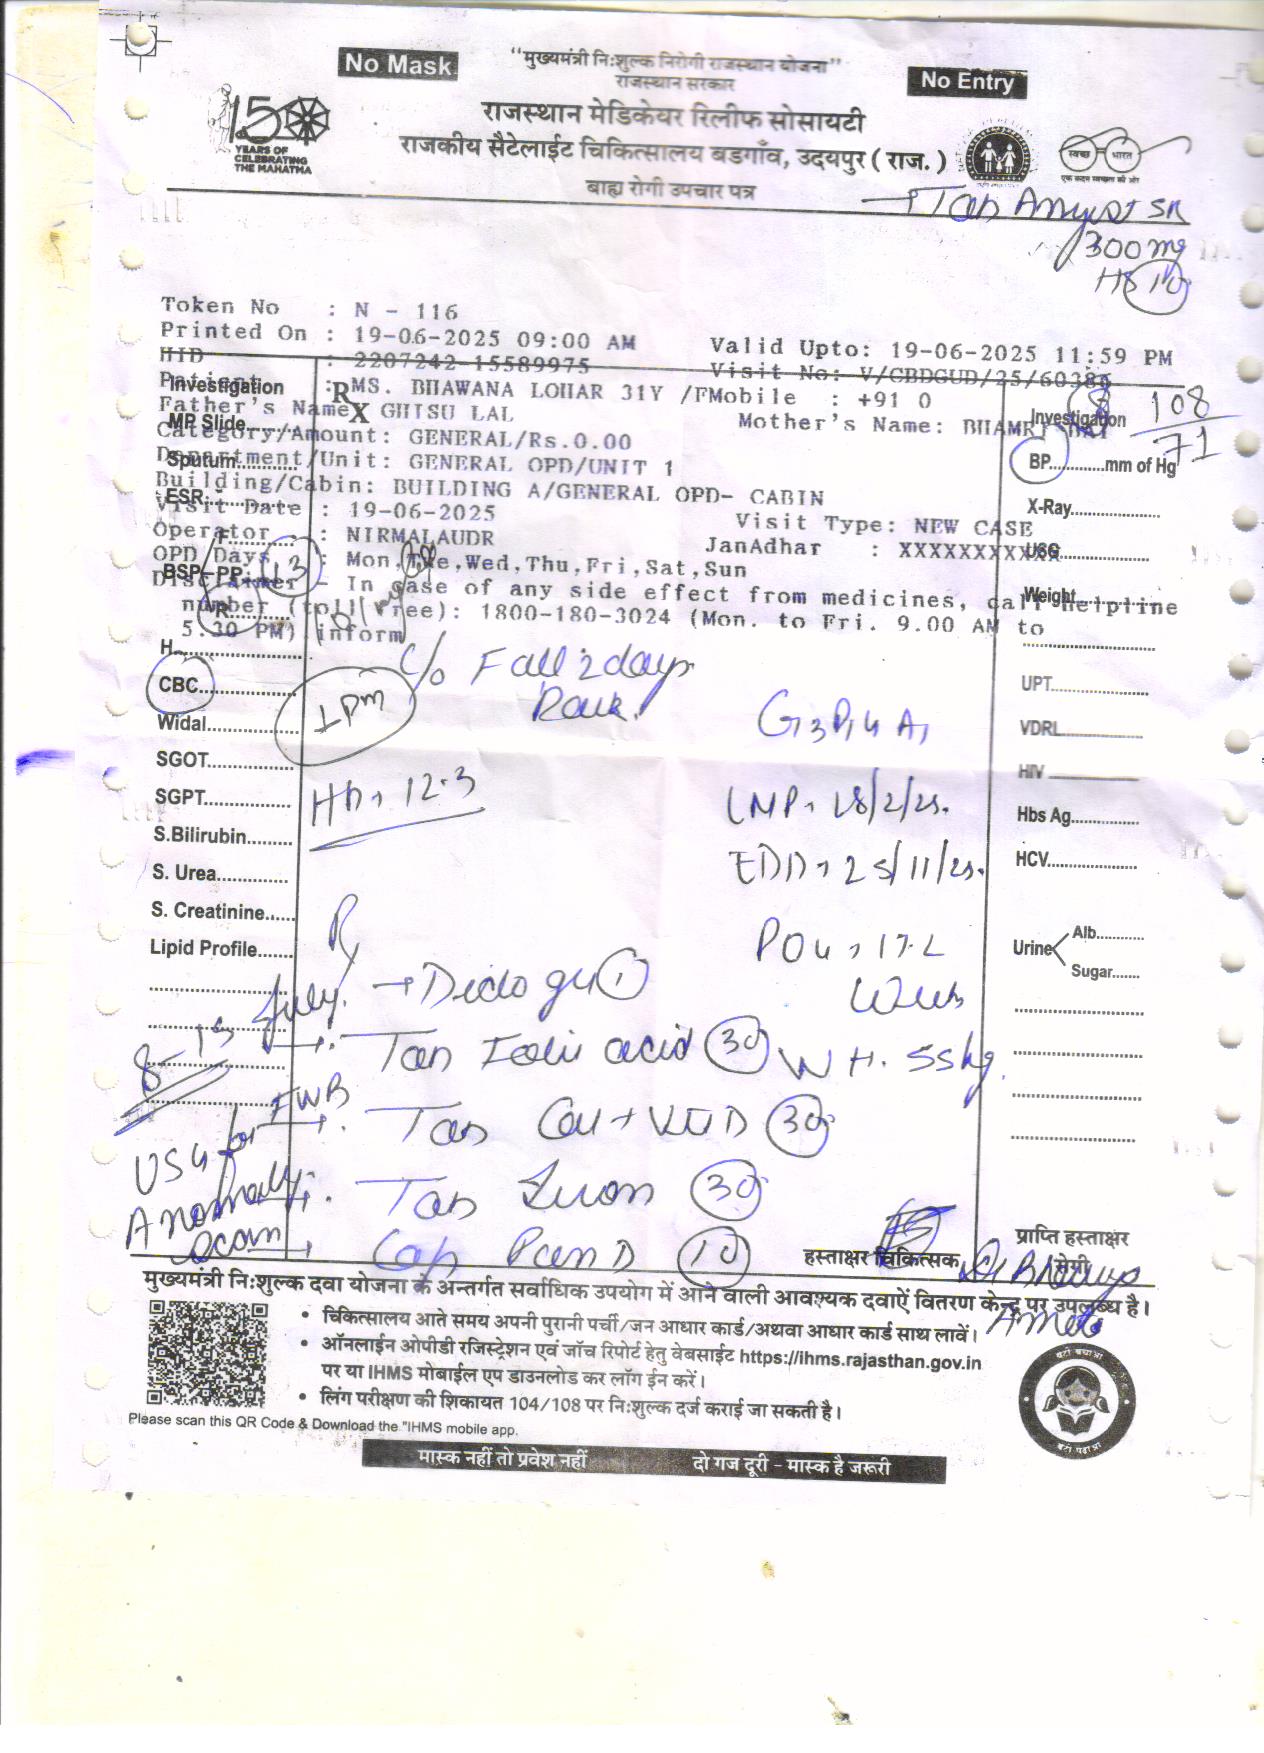 No Mask
"मुख्यमंत्री निःशुल्क निरोगी राजस्थान योजना"
राजस्थान सरकार
No Entry
राजस्थान मेडिकेयर रिलीफ सोसायटी
राजकीय सैटेलाईट चिकित्सालय बडगाँव, उदयपुर ( राज. )
बाह्य रोगी उपचार पत्र
150
YEARS OF
CELEBRATING
THE MAHATMA
स्वच्छ भारत
एक कदम स्वच्छता की ओर
→ Tab SR
300 mg
HS 10
Token No : N - 116
Printed On : 19-06-2025 09:00 AM
Valid Upto: 19-06-2025 11:59 PM
HID : 2207242-15589975
Visit No: V/CBDGUD/25/60386
Patient : MS. BHAWANA LOHAR 31Y /F
Mobile : +91 0
Father's Name GHTSU LAL
Mother's Name:
Category/Amount: GENERAL/Rs.0.00
Department/Unit: GENERAL OPD/UNIT 1
Building/Cabin: BUILDING A/GENERAL OPD- CABIN
Visit Date : 19-06-2025
Visit Type: NEW CASE
Operator : NIRMALAUDR
JanAdhar : XXXXXXXXXX
OPD Days : Mon,Tue,Wed,Thu,Fri,Sat,Sun
Disclaimer - In case of any side effect from medicines, call helpline
number (toll free): 1800-180-3024 (Mon. to Fri. 9.00 AM to
5.30 PM) inform
Investigation
Rx
MP Slide
Sputum
ESR
BSF
PP
R
H
CBC
Widal
SGOT
SGPT
S.Bilirubin
S. Urea
S. Creatinine
Lipid Profile
Investigation
108
71
BP mm of Hg
X-Ray
USG
Weight
UPT
VDRL
HIV
Hbs Ag
HCV
Urine Alb
Sugar
c/o 2 days
Hb 12.3
G3P1 A1
LMP 18/2/25
EDD 25/11/25
POG 17.2
Wks
Wt. 55kg
Rx
→ (1)
→ Tab Folic acid (30)
→ Tab Cal + Vit D (30)
→ Tab Iron (30)
→ Cap Pan D (10)
8-15 July
USG for FWB
Anomaly
scan
प्राप्ति हस्ताक्षर
रोगी
हस्ताक्षर चिकित्सक
मुख्यमंत्री निःशुल्क दवा योजना के अन्तर्गत सर्वाधिक उपयोग में आने वाली आवश्यक दवाऐं वितरण केन्द्र पर उपलब्ध है।
• चिकित्सालय आते समय अपनी पुरानी पर्ची/जन आधार कार्ड/अथवा आधार कार्ड साथ लावें।
• ऑनलाईन ओपीडी रजिस्ट्रेशन एवं जॉच रिपोर्ट हेतु वेबसाईट https://ihms.rajasthan.gov.in
पर या IHMS मोबाईल एप डाउनलोड कर लॉग ईन करें।
• लिंग परीक्षण की शिकायत 104/108 पर निःशुल्क दर्ज कराई जा सकती है।
Please scan this QR Code & Download the "IHMS mobile app.
मास्क नहीं तो प्रवेश नहीं
दो गज दूरी - मास्क है जरूरी